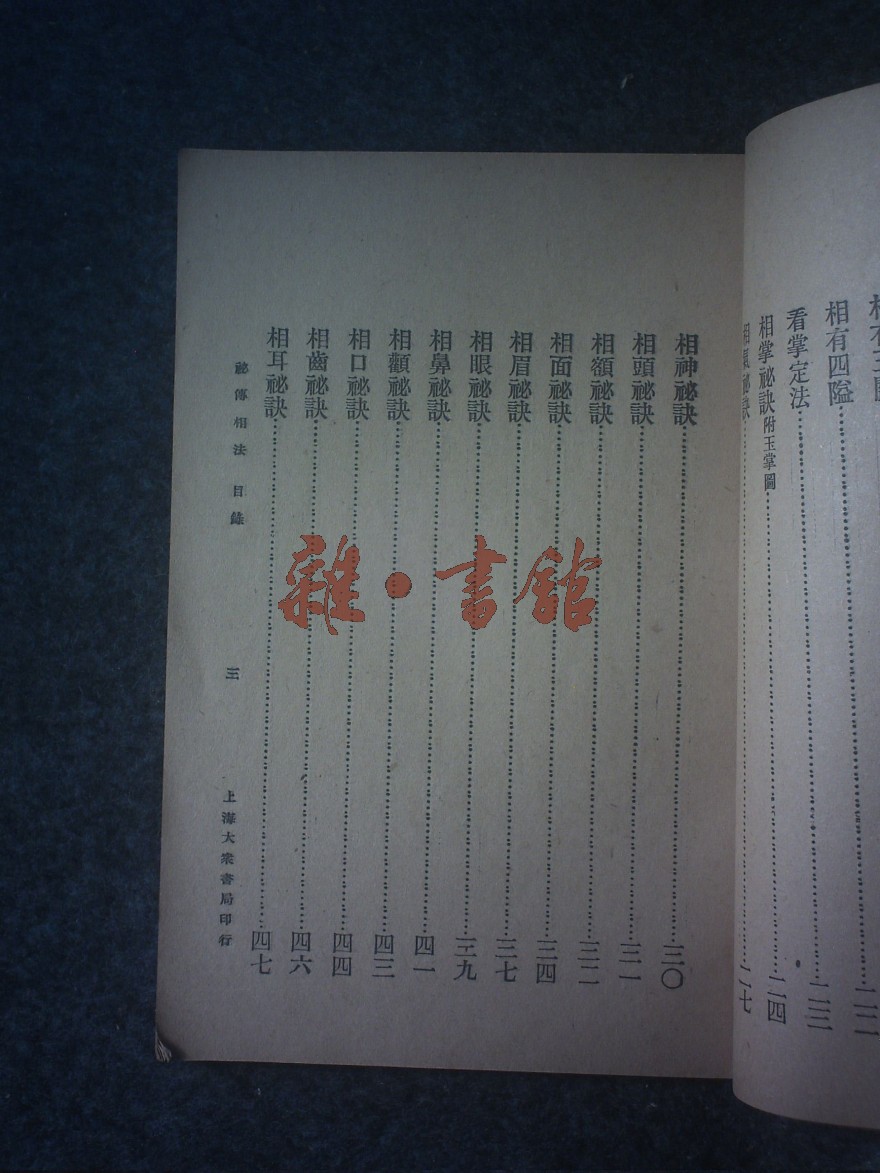 相有四隘……二二
看掌定法……二三
相掌祕訣附玉掌圖……二四
相氣祕訣……二七
相神祕訣……三〇
相頭祕訣……三一
相額祕訣……三二
相面祕訣……三四
相眉祕訣……三七
相眼祕訣……三九
相鼻祕訣……四一
相顴祕訣……四三
相口祕訣……四四
相齒祕訣……四六
相耳祕訣……四七
祕傳相法 目錄 三 上海大衆書局印行
雜·書館